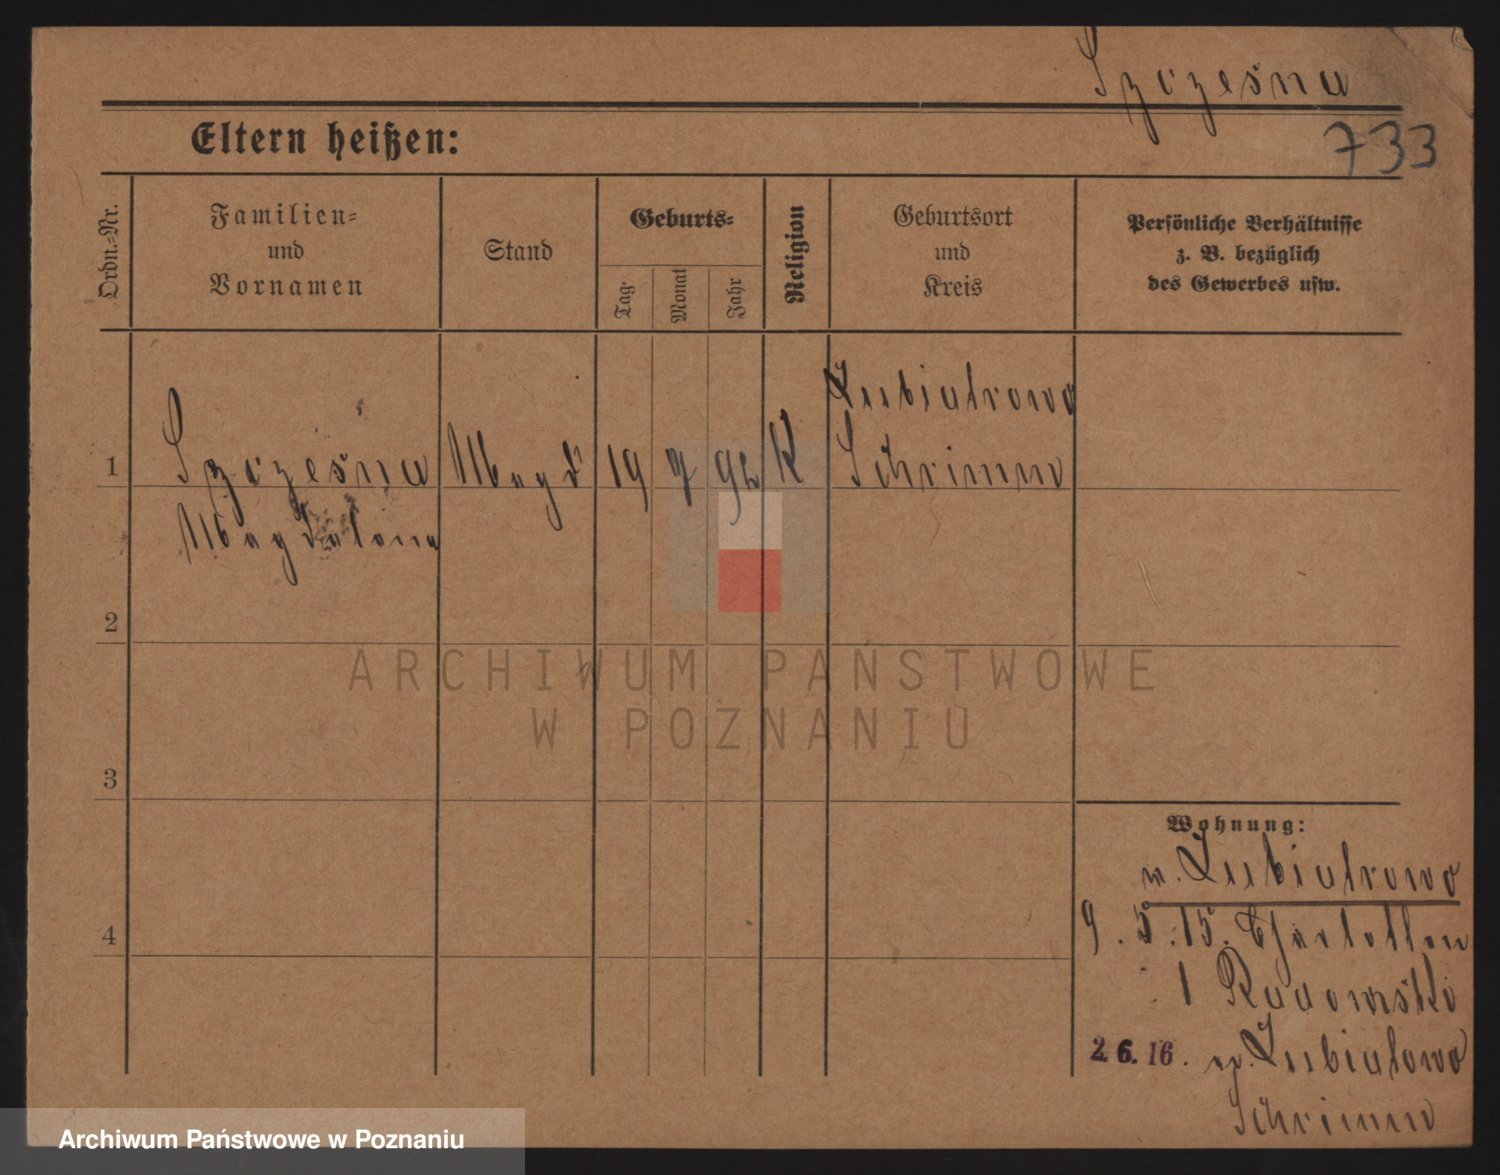 Szczesna
733
Eltern heißen:
Ordn.-Nr.
Familien-
und
Vornamen
Stand
Geburts-
Tag
Monat
Jahr
Religion
Geburtsort
und
Kreis
Persönliche Verhältnisse
z. B. bezüglich
des Gewerbes usw.
Lubiatrowo
1 Szczesna Magd 19 7 92 K Schrimm
Magdalena
2
3
4
Wohnung:
Lubiatrowo
9.5.15. Charlotten
1
2 6. 16. Lubiatowo
Schrimm
ARCHIWUM PAŃSTWOWE
W POZNANIU
Archiwum Państwowe w Poznaniu